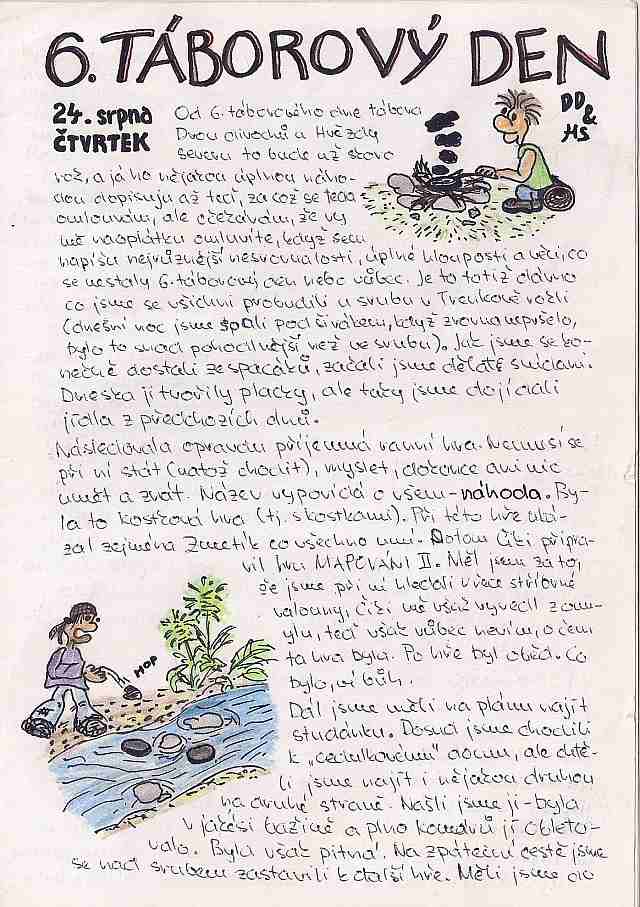 6. TÁBOROVÝ DEN
24. srpna
ČTVRTEK
DD
&
HS
Od 6. táborového dne tábora
Dvou divochů a Hvězdy
severu to bude už skoro
rok, a já ho nějakou úplnou náho-
dou dopisuju až teď, za což se teda
omlouvám, ale očekávám, že vy
mě naoplátku omluvíte, když sem
napíšu nejrůznější nesrovnalosti, úplné hlouposti a věci, co
se nestaly 6. táborový den nebo vůbec. Je to totiž dávno
co jsme se všichni probudili u srubu v Trenkově rokli
(dnešní noc jsme spali pod širákem, když zrovna nepršelo,
bylo to snad pohodlnější než ve srubu). Jak jsme se ko-
nečně dostali ze spacáků, začali jsme dělat snídani.
Dneska ji tvořily placky, ale taky jsme dojídali
jídla z předchozích dnů.
Následovala opravdu příjemná ranní hra. Nemusí se
při ní stát (natož chodit), myslet, dokonce ani nic
umět a znát. Název vypovídá o všem - náhoda. By-
la to kostková hra (tj. s kostkami). Při této hře uká-
zal zejména Zmetík co všechno umí. Potom Čiki připra-
vil hru MAPOVÁNÍ II. Měl jsem za to,
že jsme při ní hledali v řece stříbrné
valouny, Čiki mě však vyvedl z omy-
lu, teď však vůbec nevím, o čem
ta hra byla. Po hře byl oběd. Co
bylo, ví bůh.
Dál jsme měli na plánu najít
studánku. Dosud jsme chodili
k „cedulkovému“ domu, ale chtě-
li jsme najít i nějakou druhou
na druhé straně. Našli jsme ji - byla
v jakési bažině a plno komárů jí obleto-
valo. Byla však pitná. Na zpáteční cestě jsme
se nad srubem zastavili k další hře. Měli jsme do
HOP